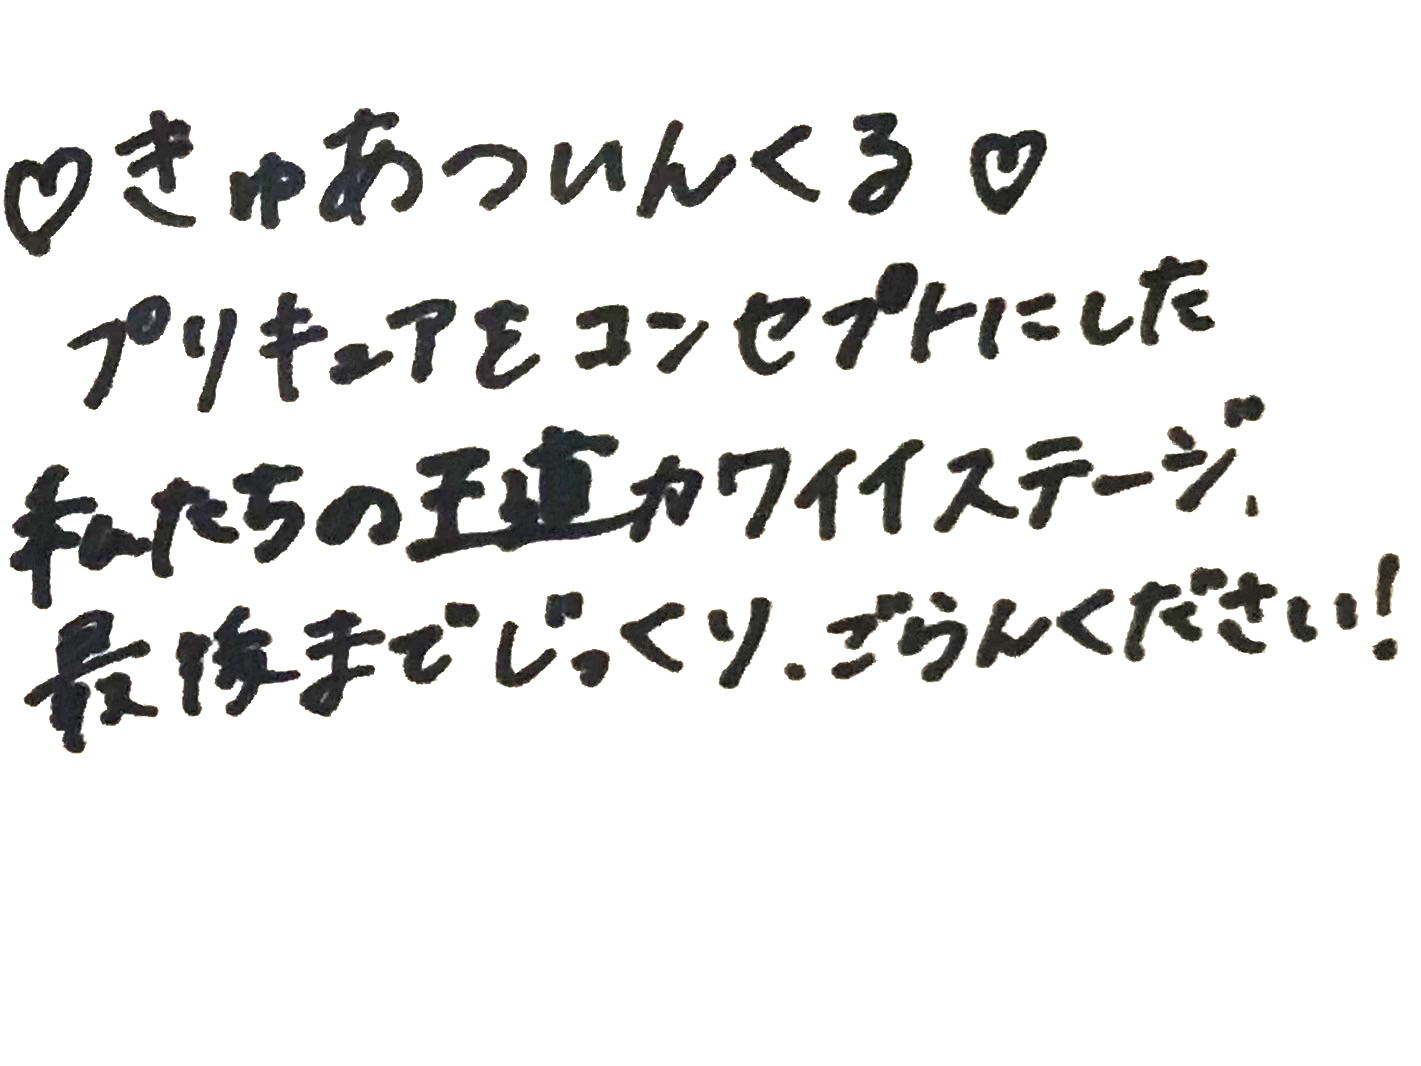 ♡きゅあついんくる♡
プリキュアをコンセプトにした
私たちの王道カワイイステージ、
最後までじっくり、ごらんください!